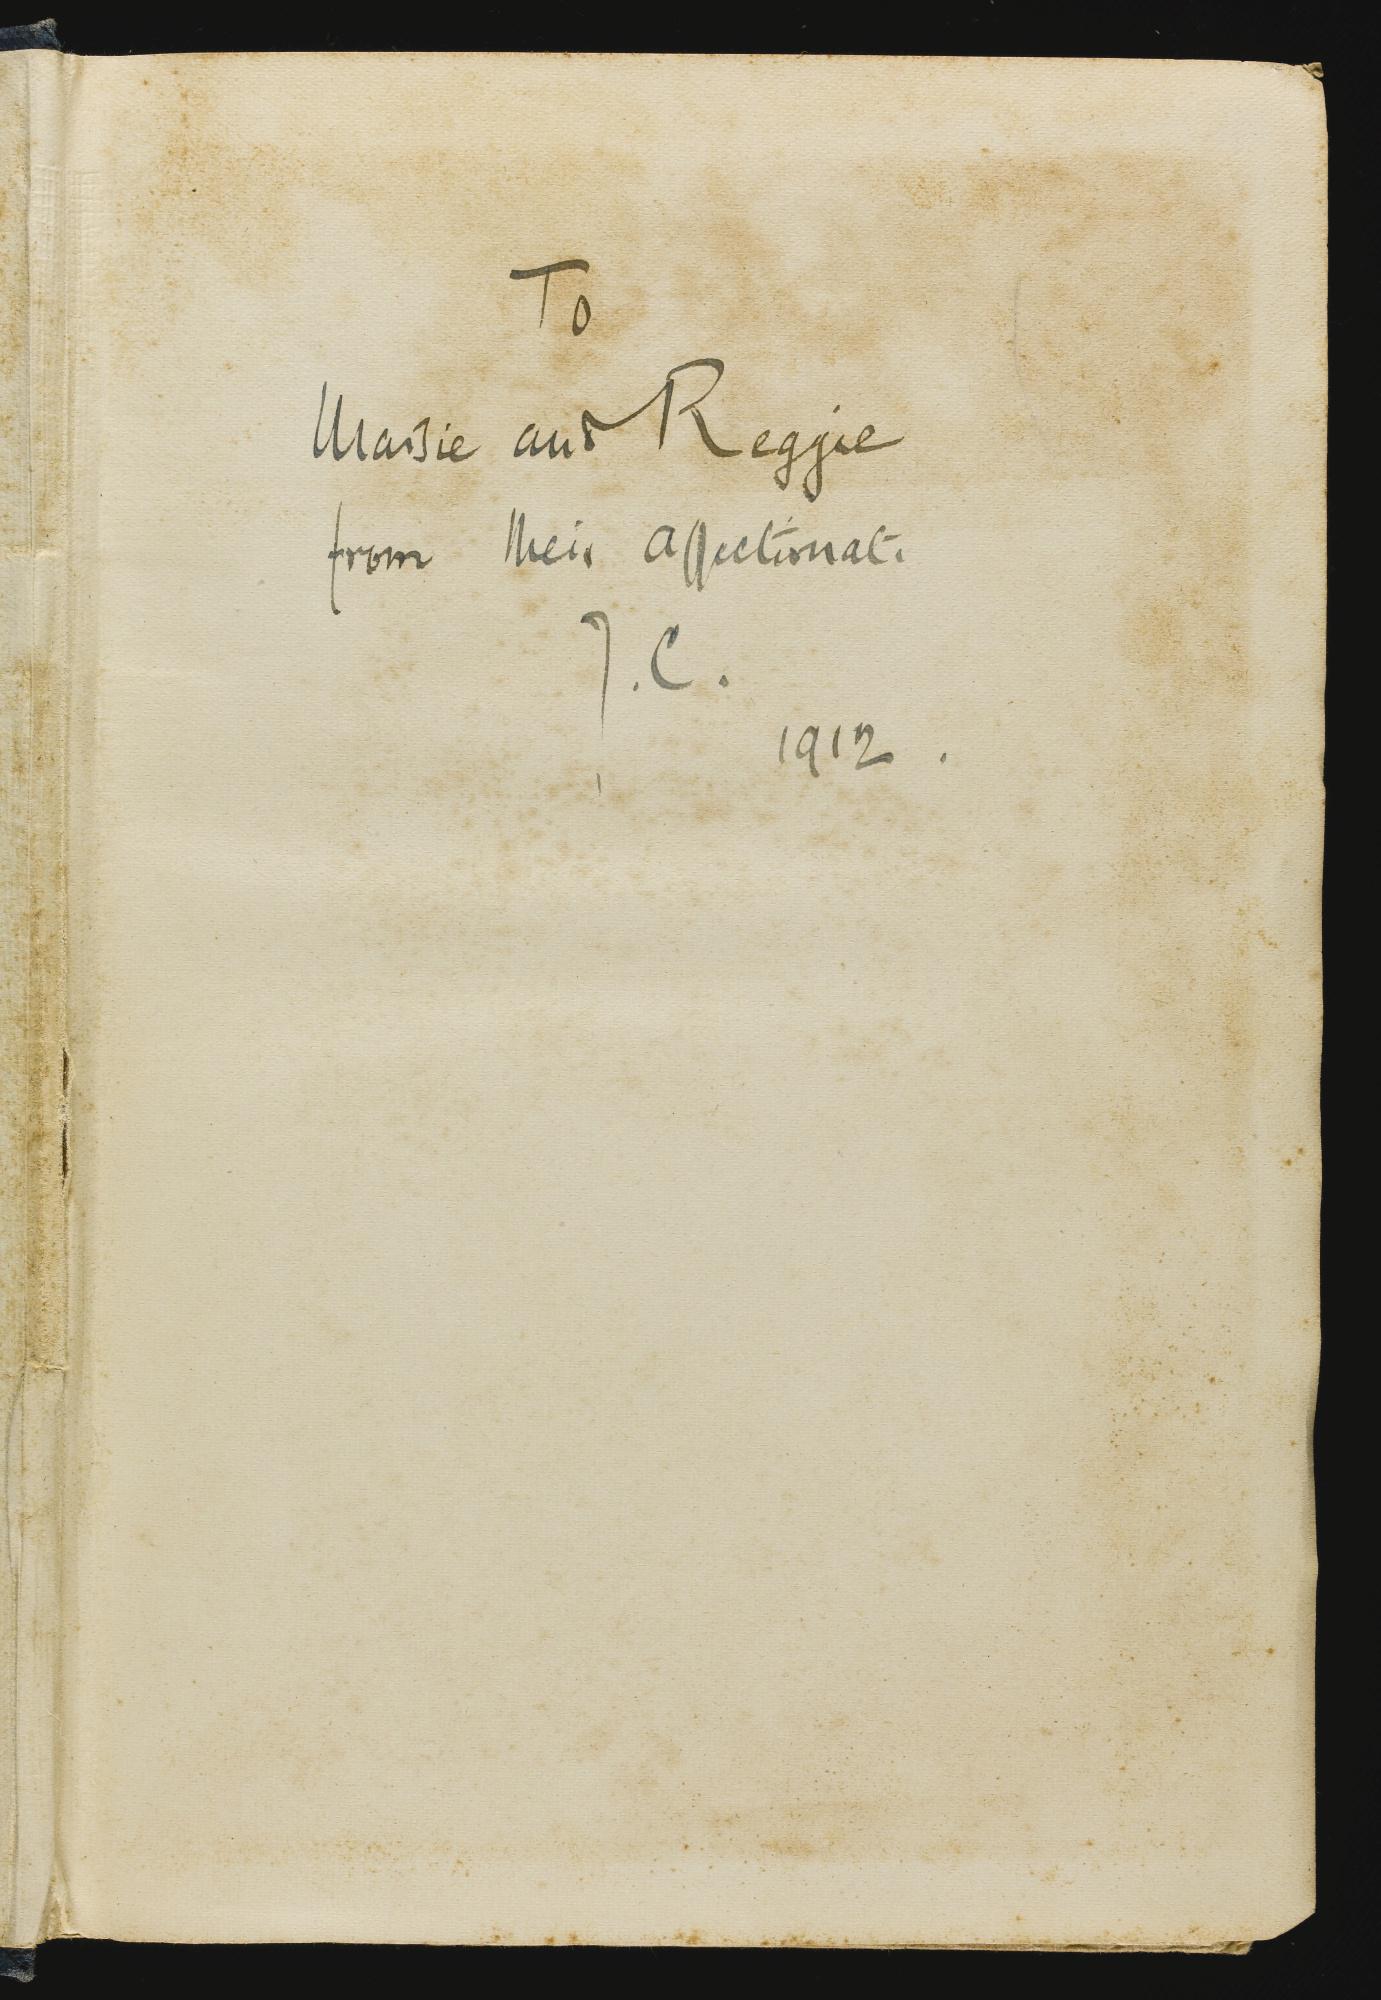 To
Maisie and Reggie
from their affectionate
J.C.
1912.